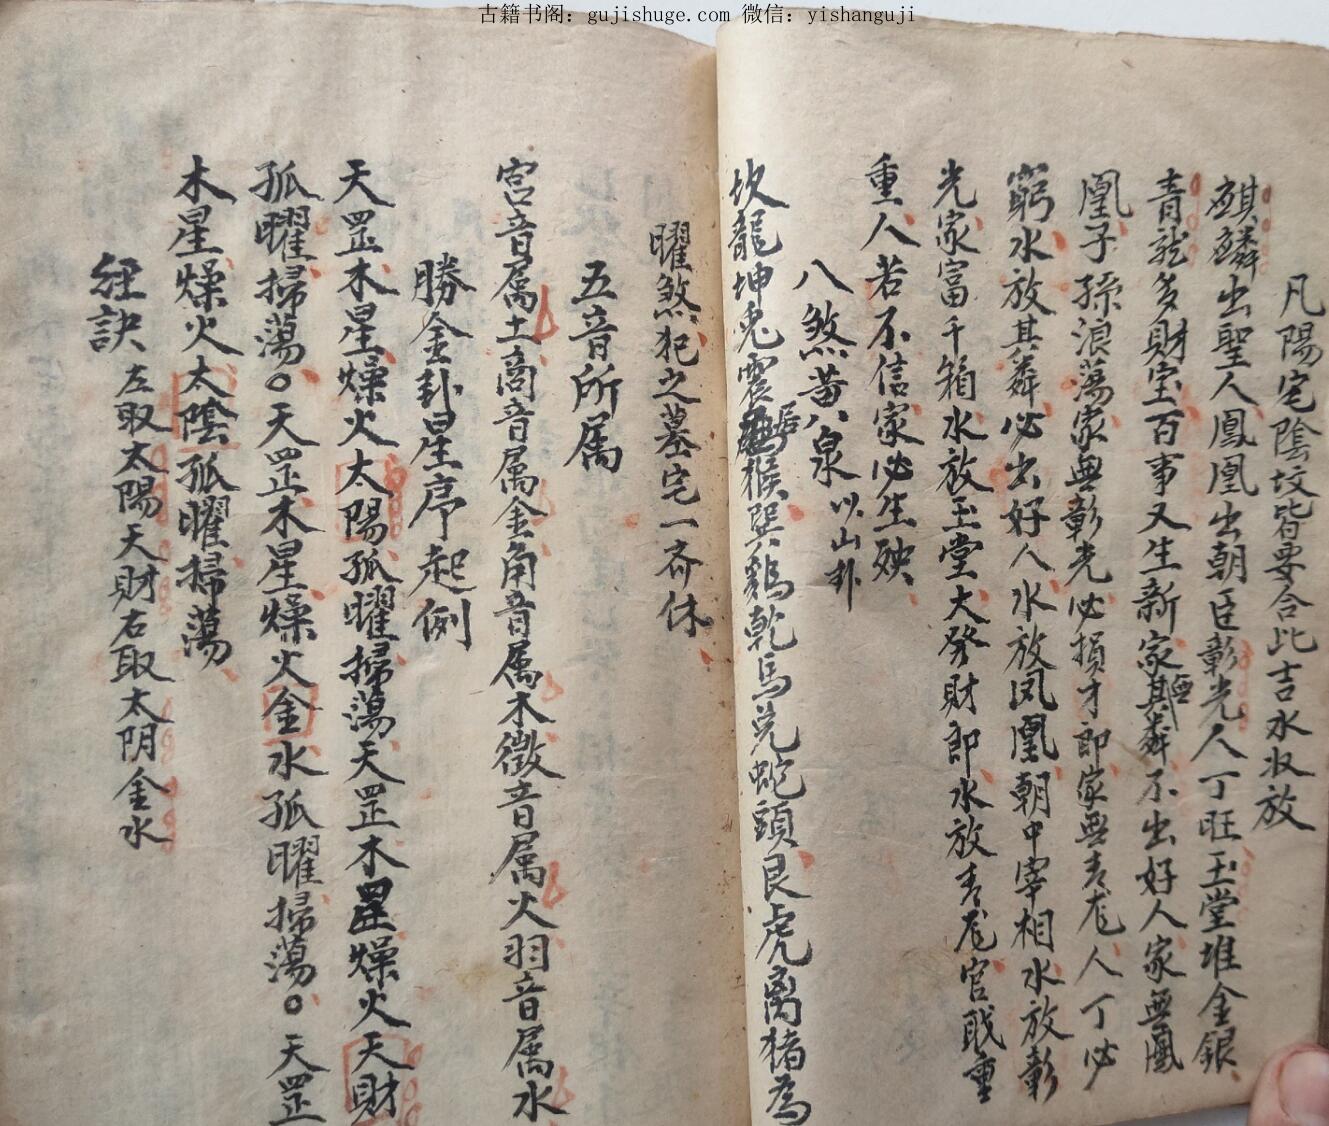 古籍书阁：gujishuge.com 微信：yishanguji
凡陽宅陰坟皆要合此吉水收放
麒麟出聖人鳳凰出朝臣彰光人丁旺玉堂堆金銀
青龙多財宝百事又生新家無其粦不出好人家無鳳
凰子孫浪蕩家無彰光必損才即家無青龙人丁必
窮水放其粦必出好人水放凤凰朝中宰相水放彰
光家富千箱水放玉堂大発財即水放青龙官戝重
重人若不信家必生殃
八煞黄八泉以山卦
坎龍坤兎震居猴巽鷄乾馬兑蛇頭艮虎离猪為
曜煞犯之墓宅一斉休
五音所属
宮音属土商音属金角音属木徵音属火羽音属水
勝金卦星序起例
天罡木星燥火太陽孤曜掃蕩天罡木星燥火天財
孤曜掃蕩○天罡木星燥火金水孤曜掃蕩○天罡
木星燥火太陰孤曜掃蕩
経訣
左取太陽天財右取太阴金水